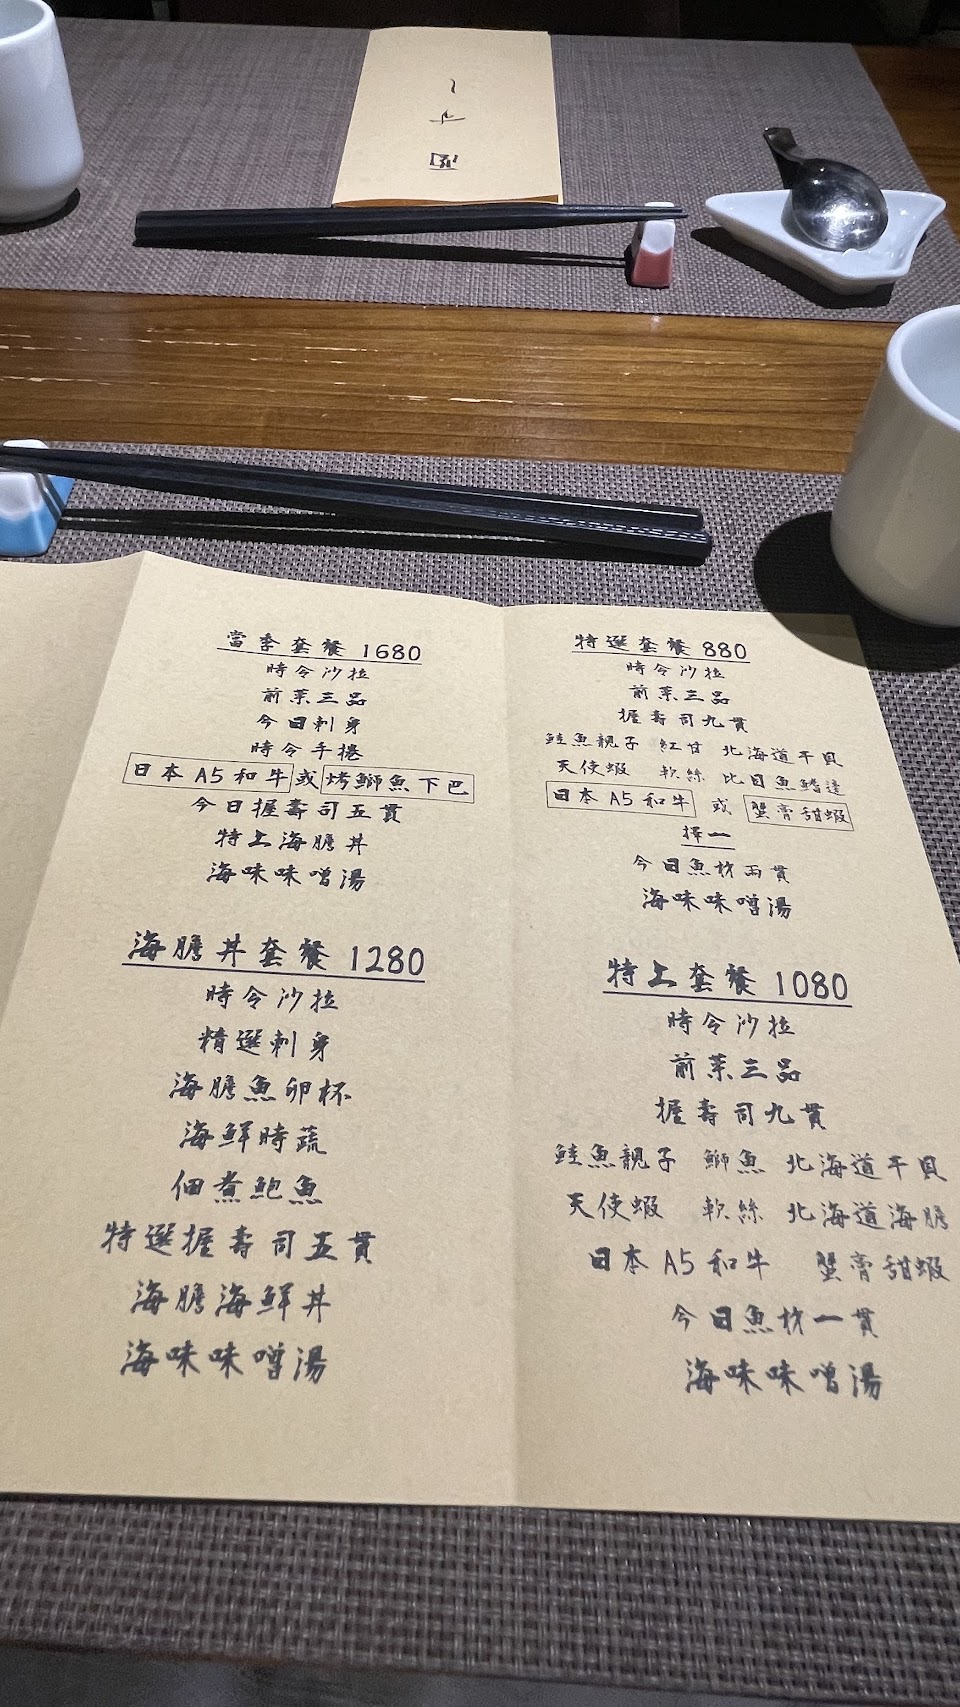 當季套餐 1680
時令沙拉
前菜三品
今日刺身
時令手捲
日本 A5 和牛 或 烤鰤魚下巴
今日握壽司五貫
特上海膽丼
海味味噌湯
海膽丼套餐 1280
時令沙拉
精選刺身
海膽魚卵杯
海鮮時蔬
佃煮鮑魚
特選握壽司五貫
海膽海鮮丼
海味味噌湯
特選套餐 880
時令沙拉
前菜三品
握壽司九貫
鮭魚親子 紅甘 北海道干貝
天使蝦 軟絲 比目魚鰭邊
日本 A5 和牛 或 蟹膏甜蝦
擇一
今日魚材兩貫
海味味噌湯
特上套餐 1080
時令沙拉
前菜三品
握壽司九貫
鮭魚親子 鰤魚 北海道干貝
天使蝦 軟絲 北海道海膽
日本 A5 和牛 蟹膏甜蝦
今日魚材一貫
海味味噌湯